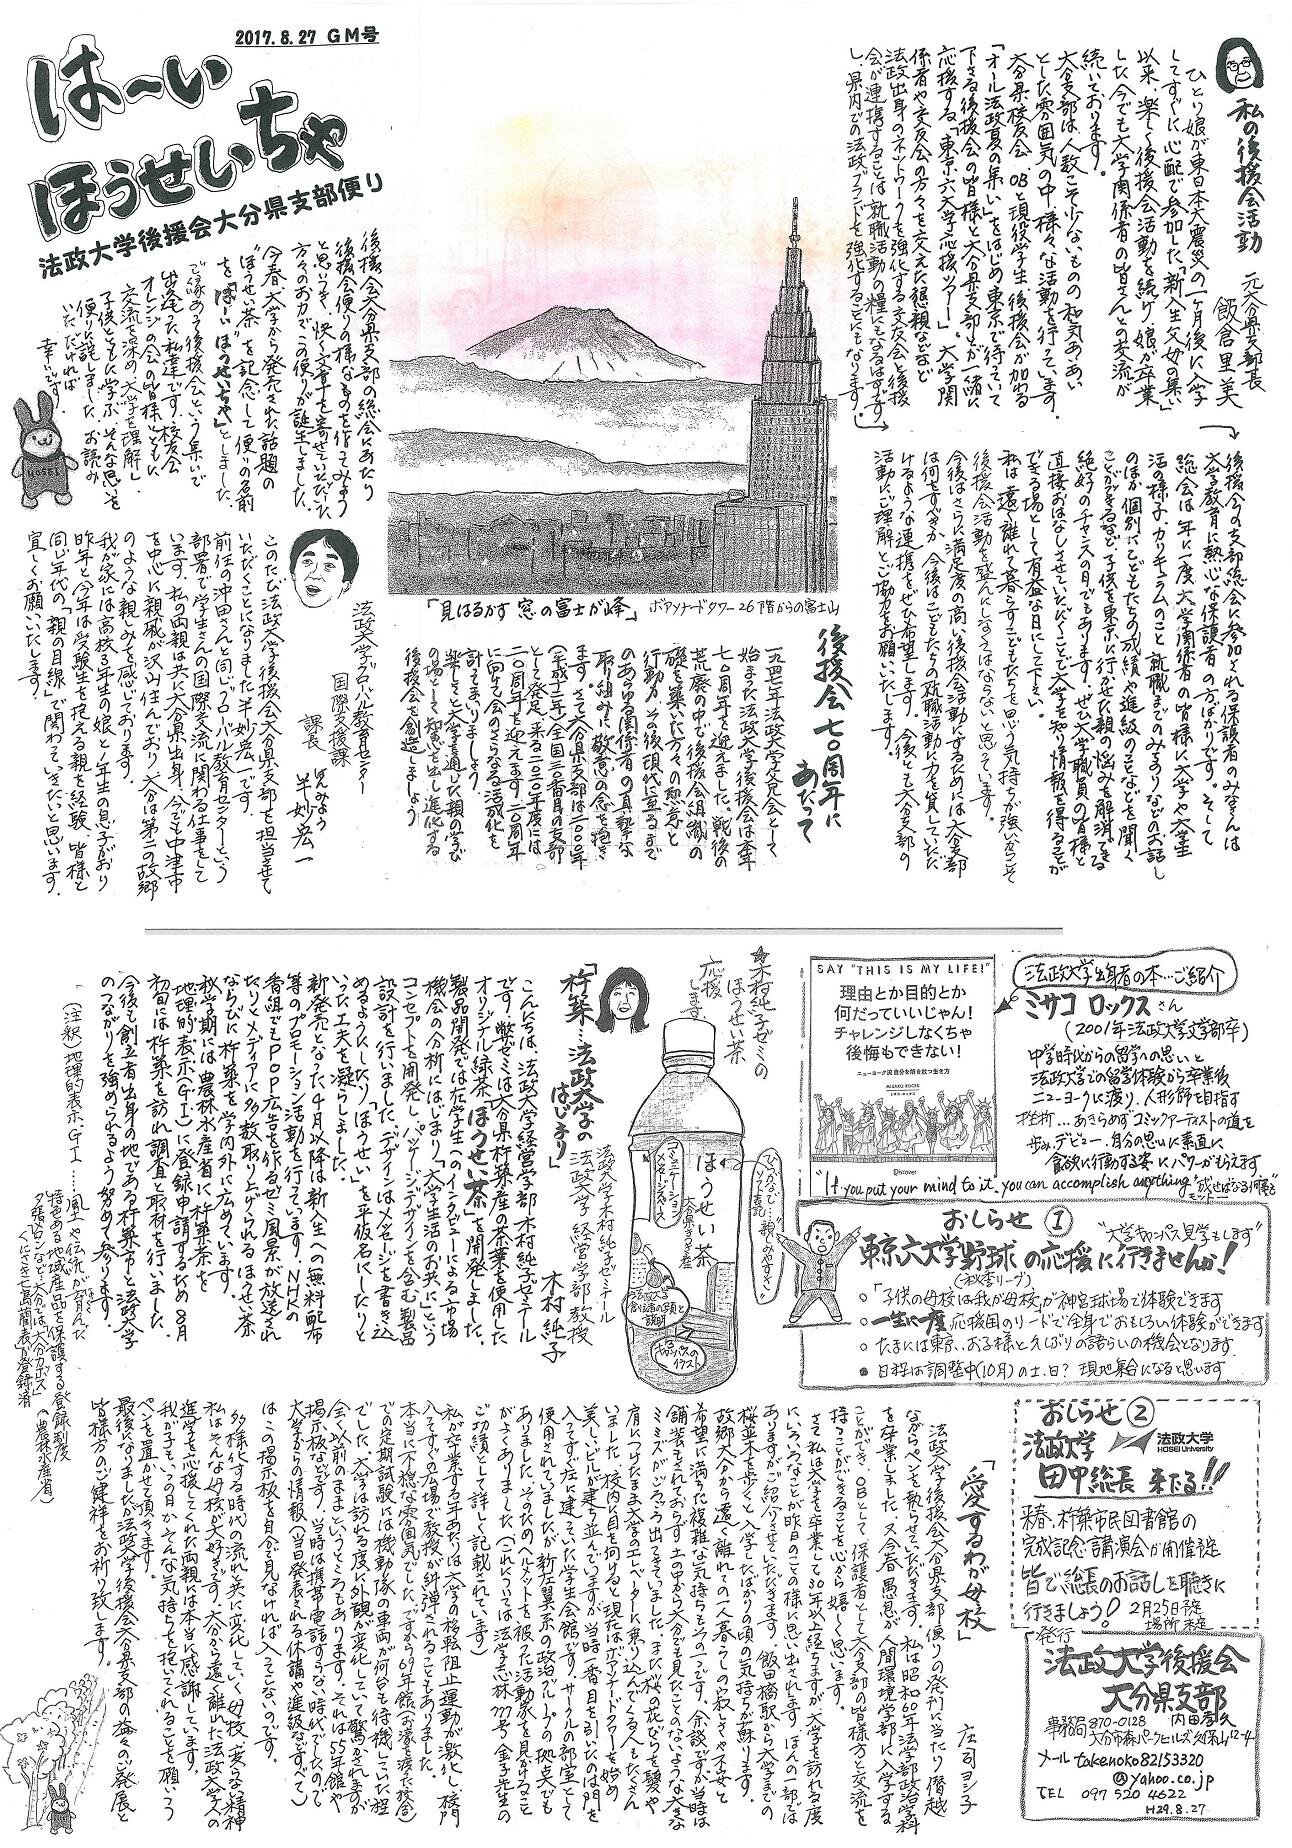 2017.8.27 GM号
は〜い
ほうせいちゃ
法政大学後援会大分県支部便り
後援会大分県支部の総会にあたり
後援会便りの様なものを作ってみよう
と思いつき、快く文章を寄せていただいた
方々のお力でこの便りが誕生しました。
今春、大学から発売された話題の
"ほうせい茶"を記念して便りの名前
を「は〜い"ほうせいちゃ」としました。
ご縁あって後援会という集いで
出逢った私達です。校友会
オレンジの会の皆様ともに
交流を深め、大学を理解し
子供とともに学ぶ、そんな思いを
便りに託しました。お読み
いただければ
幸いです。
HOSEI
私の後援会活動
元大分県支部長
飯倉里美
ひとり娘が東日本大震災の一ヶ月後に入学
してすぐに心配で参加した「新入生父母の集い」
以来、楽しく後援会活動を続け、娘が卒業
した今でも大学関係者の皆さんとの交流が
続いております。
大分支部は人数こそ少ないものの和気あいあい
とした雰囲気の中、様々な活動を行っています。
大分県校友会 OBと現役学生、後援会が加わる
「オール法政夏の集い」をはじめ、東京で待っていて
下さる後援会の皆様と大分県支部生が一緒に
応援する「東京六大学応援ツアー」。大学関
係者や校友会の方々を交えた懇親会など
法政出身のネットワークを強化する交友会と後援
会が連携することは就職活動の糧にもなるはずです
し、県内での法政ブランドを強化することにもなります。
後援会の支部総会に参加される保護者のみなさんは
大学教育に熱心な保護者の方ばかりです。そして
総会は年に一度、大学関係者の皆様に大学や大学生
活の様子、カリキュラムのこと、就職までのみちのりなどのお話し
のほか個別にこどもたちの成績や進級のことなどを聞く
ことができるなど、子供を東京に行かせた親の悩みを解消できる
絶好のチャンスの日でもあります。ぜひ大学職員の皆様と
直接おはなしさせていただくことで大学を知り情報を得ることが
できる場として有益な日にして下さい。
私は遠く離れて暮らすこどもたちを思う気持ちが強いからこそ
後援会活動を盛んにしなくてはならないと思っています。
今後はさらに満足度の高い後援会活動にするためには大分支部
は何をすべきか、今後はこどもたちの就職活動に力を貸していただ
けるような連携をぜひ希望します。今後とも大分支部の
活動にご理解とご協力をお願いいたします。
「見はるかす 窓の富士が峰」 ボアソナードタワー26階からの富士山
後援会七〇周年に
あたって
一九四七年法政大学父兄会として
始まった法政大学後援会は本年
七〇周年を迎えました。戦後の
荒廃の中で後援会組織の
礎を築いた方々の熱意と
行動力、その後現代に至るまで
のあらゆる関係者の真摯な
取り組みに敬意の念を抱き
ます。さて大分県支部は二〇〇〇年
(平成十二年)全国三〇番目の支部
として発足、来る二〇二〇年度には
二〇周年を迎えます。二〇周年
に向けて会のさらなる活成化を
計ってまいりましょう。
楽しさと大学を通じた親の学び
の場として知恵を出し進化する
後援会を創造しましょう
法政大学グローバル教育センター
国際支援課
課長 はんみょう
半妙宏一
このたび法政大学後援会大分県支部を担当させて
いただくことになりました半妙宏一です。
前任の沖田さんと同じグローバル教育センターという
部署で学生さんの国際交流に関わる仕事をして
います。私の両親は共に大分県出身、今でも中津市
を中心に親戚が沢山住んでおり大分は第二の故郷
のような親しみを感じております。
我が家には高校3年生の娘と1年生の息子がおり
昨年と今年は受験生を抱える親を経験、皆様と
同じ年代の「親の目線」で関わっていきたいと思います。
宜しくお願いいたします。
法政大学出身者の本…ご紹介
ミサコ ロックスさん
(2001年法政大学文学部卒)
中学時代からの留学への思いと
法政大学での留学体験から卒業後
ニューヨークに渡り、人形師を目指す
挫折…あきらめずコミックアーティストの道を
歩みデビュー。自分の思いに素直に
貪欲に行動する姿にパワーがもらえます
"If you put your mind to it, you can accomplish anything"
SAY "THIS IS MY LIFE!"
理由とか目的とか
何だっていいじゃん!
チャレンジしなくちゃ
後悔もできない!
ニューヨーク流自分を貫く生き方
MISAKO ROCKS
Discover
☆木村純子ゼミの
ほうせい茶
応援
します。
ほうせい茶
大分県きつき産
コミュニケーション
メッセージスペース
「杵築…法政大学の
はじまり」
法政大学木村純子ゼミナール
法政大学 経営学部 教授
木村純子
こんにちは、法政大学経営学部木村純子ゼミナール
です。弊ゼミは大分県杵築産の茶葉を使用した
オリジナル緑茶「ほうせい茶」を開発しました。
製品開発では在学生へのインタビューによる市場
機会の分析にはじまり「大学生活のお共に」という
コンセプトを開発し、パッケージデザインを含む製品
設計を行いました。デザインはメッセージを書き込
めるようにしたり、「ほうせい」を平仮名にしたりと
いった工夫を凝らしました。
新発売となった4月以降は新入生への無料配布
等のプロモーション活動を行っています。NHKの
番組でもPOP広告を作るゼミ風景が放送され
たりとメディアに多数取り上げられるほうせい茶
ならびに杵築を学内外に広めています。
秋学期には農林水産省に杵築茶を
地理的表示(GI)に登録申請するため8月
初旬には杵築を訪れ調査と取材を行いました。
今後も創立者出身の地である杵築市と法政大学
のつながりを強められるよう努めて参ります。
(注釈)地理的表示、GI……風土や伝統が育んだ
特色ある地域産品を保護する登録制度
(農林水産省)
おしらせ①
"大学キャンパス見学もします"
東京六大学野球の応援に行きませんか!
(秋季リーグ)
○「子供の母校は我が母校」が神宮球場で体験できます
○一生に一度 応援団のリードで全身でおもしろい体験ができます
○たまには東京、お子様と久しぶりの語らいの機会となります。
●日程は調整中(10月)の土、日? 現地集合になると思います
おしらせ②
法政大学
HOSEI University
法政大学
田中総長 来たる!!
来春、杵築市民図書館の
完成記念講演会が開催予定
皆で総長のお話しを聴きに
行きましょう! 2月25日予定
場所 未定
発行
法政大学後援会
大分県支部
事務局 870-0128 内田孝久
大分市森パークヒルズ久保山12-4
メール takenoko82153320
@yahoo.co.jp
TEL 097 520 4622
H29.8.27
「愛するわが母校」
庄司ヨシ子
法政大学後援会大分県支部便りの発刊に当たり僭越
ながらペンを執らせていただきます。私は昭和60年法学部政治学科
を卒業しました。又今春、愚息が人間環境学部に入学する
ことができ、OBとして、保護者として大分支部の皆様方と交流を
持つことができることを心から嬉しく思います。
さて私は大学を卒業して30年以上経ちますが大学を訪れる度
にいろいろなことが昨日のことの様に思い出されます。ほんの一部では
ありますがご紹介させていただきます。飯田橋駅から大学までの
桜並木を歩くと入学したばかりの頃の気持ちが蘇ります。
故郷大分から遠く離れての一人暮らしの寂しさや不安と
希望に満ちた複雑な気持ちもその一つです。余談ですが当時は
舗装もされておらず土の中から大分でも見たことのないような大きな
ミミズがごろごろ出てきていました。また桜の花びらを髪や
肩につけたまま大学のエレベーターに乗り込んでくる人もたくさん
いました。校内に目を向けると現在はボアソナードタワーを始め
美しいビルが建ち並んでいますが当時一番目を引いたのは門を
入ってすぐ左に建っていた学生会館です。サークルの部室として
使用されていましたが新左翼系の政治グループの拠点でも
ありました。そのためヘルメットを被った活動家を見かけること
がよくありました。(これについては法学志林777号金子先生の
ご功績として詳しく記載されています)
私が卒業する年あたりは大学の移転阻止運動が激化し校門
入ってすぐの広場で教授が糾弾されることもありました。
本当に不穏な雰囲気でした。ですから69年館(お濠を渡った校舎)
での定期試験には機動隊の車両が何台も待機していた程
でした。大学は訪れる度に外観が変化していて驚かされますが
全く以前のままというところもあります。それは55年館や
掲示板などです。当時は携帯電話すらない時代でしたので
大学からの情報(当日発表される休講や進級などすべて)
はこの掲示板を自分で見なければ入ってこないのです。
多様化する時代の流れと共に変化していく母校、変らない精神
私はそんな母校が大好きです。大分から遠く離れた法政大学への
進学を心よく許してくれた両親には本当に感謝しています。
我が子もいつの日かそんな気持ちを抱いてくれることを願いつつ
ペンを置かせて頂きます。
最後になりましたが法政大学後援会大分県支部の益々のご発展と
皆様方のご健祥をお祈り致します。